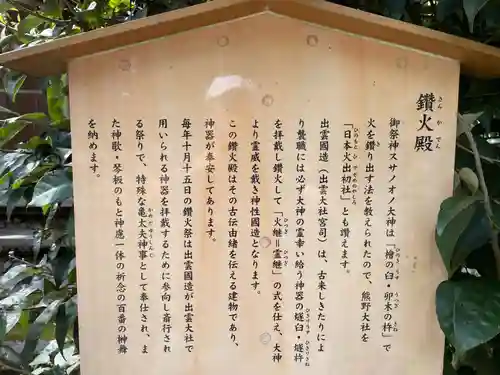 鑽火殿
さんかでん
御祭神スサノオノ大神は「檜の臼・卯木の杵」で
ひのうす うつぎ きね
火を鑽り出す法を教えられたので、熊野大社を
き
「日本火出初社」とも讃えます。
ひのもとひでぞめのやしろ
出雲國造(出雲大社宮司)は、古来しきたりによ
り襲職には必ず大神の霊幸い給う神器の燧臼・燧杵
ひきりうす ひきりきね
を拝戴し鑽火して「火継=霊継」の式を仕え、大神
ひつぎ ひつぎ
より霊威を戴き神性國造となります。
この鑽火殿はその古伝由緒を伝える建物であり、
神器が奉安してあります。
毎年十月十五日の鑽火祭は出雲國造が出雲大社で
用いられる神器を拝戴するために参向し斎行され
る祭りで、特殊な亀太夫神事として奉仕され、ま
かめだゆうしんじ
た神歌・琴板のもと神慮一体の祈念の百番の神舞
を納めます。